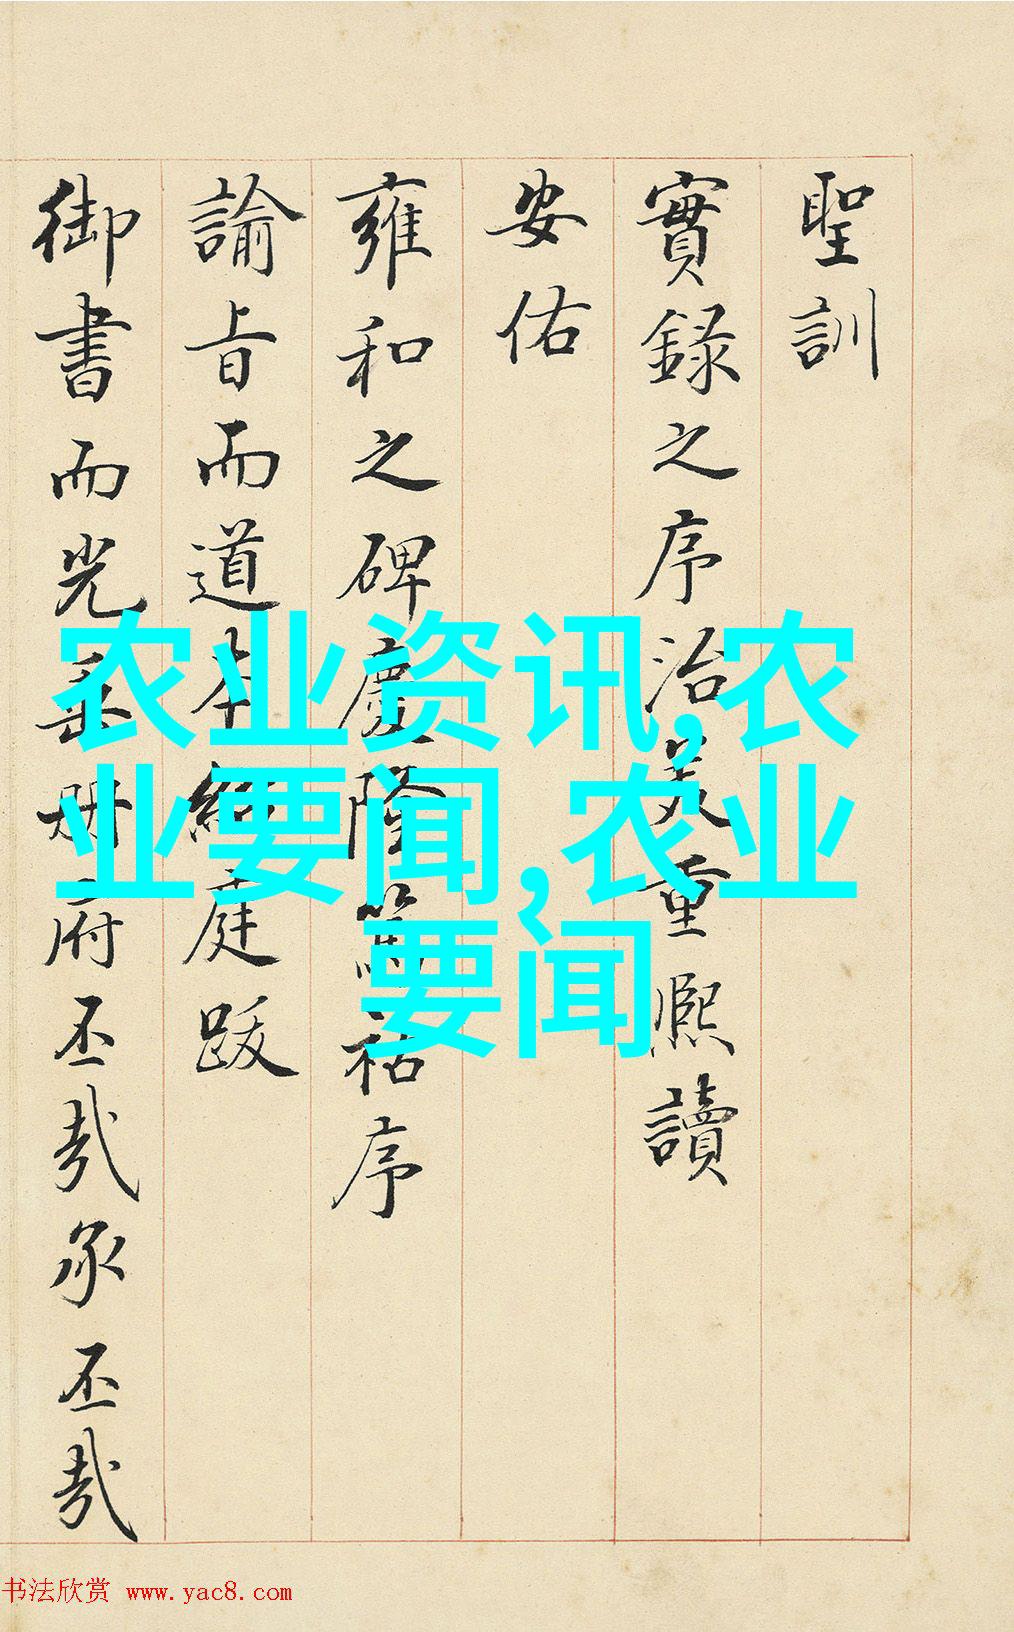 聖訓
實録之序治美重熙讀
安佑
雍和之碑慶隆篤祜序
諭旨而道本經庭跋
御書而光垂册府丕哉承丕哉
农业资讯,农
业要闻,农业
要闻
书法欣赏 www.yac8.com